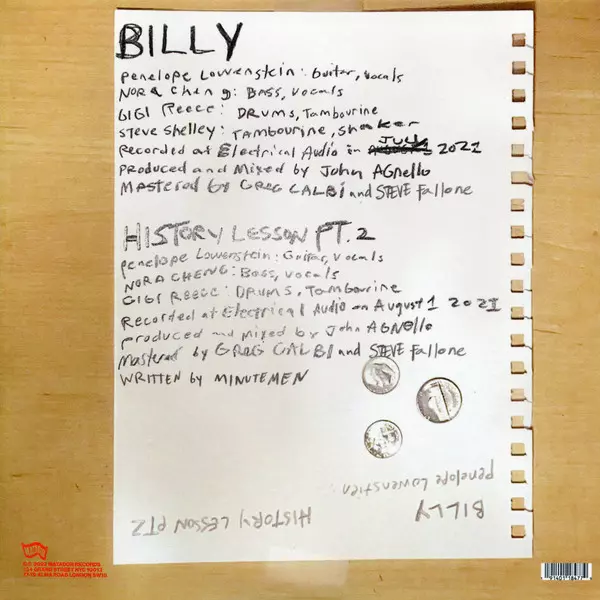 BILLY
Penelope Lowenstein: Guitar, vocals
NORA Cheng: BASS, vocals
GIGI Reece: DRUMS, Tambourine
Steve Shelley: Tambourine, Shaker
JULY
Recorded at Electrical Audio in AUGUST 1 2021
Produced and Mixed by John AGnello
Mastered by GREG CALBI and STEVE Fallone
HISTORY LESSON PT. 2
Penelope Lowenstein: Guitar, vocals
NORA CHENG: Bass, vocals
GIGI REECE: DRUMS, Tambourine
Recorded at Electrical Audio on August 1 2021
produced and mixed by John AGNello
Mastered by GREG CALBI and STEVE Fallone
WRITTEN by MINUTEMEN
penelope Lowenstien:
BILLY
HISTORY LESSON PT2
MATADOR
MATADOR RECORDS